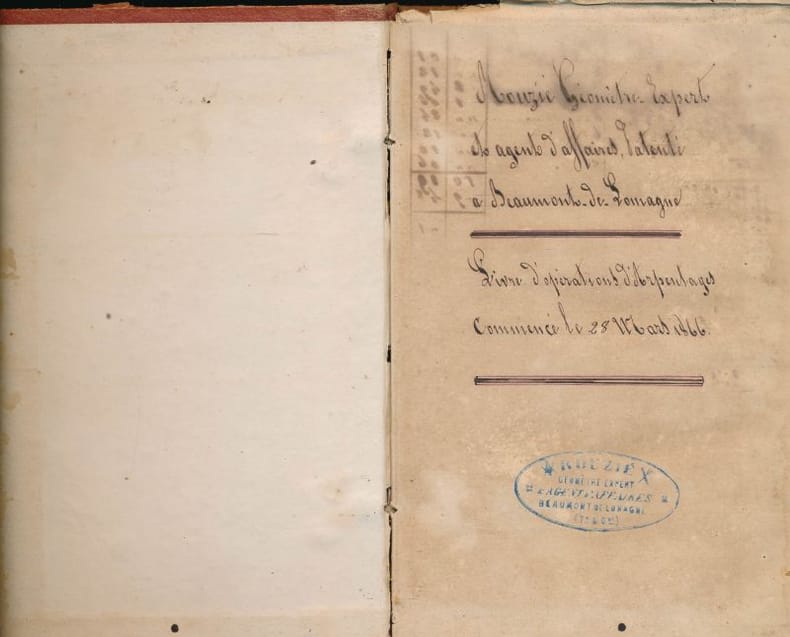 Rouzié Géomètre-Expert
et agent d'affaires, Patenté
a Beaumont-de-Lomagne
Livre d'opérations d'Arpentages
Commencé le 28 Mars 1866.
ROUZIÉ
GÉOMÈTRE EXPERT
& AGENT D'AFFAIRES
BEAUMONT DE LOMAGNE
(Tn & Gne)